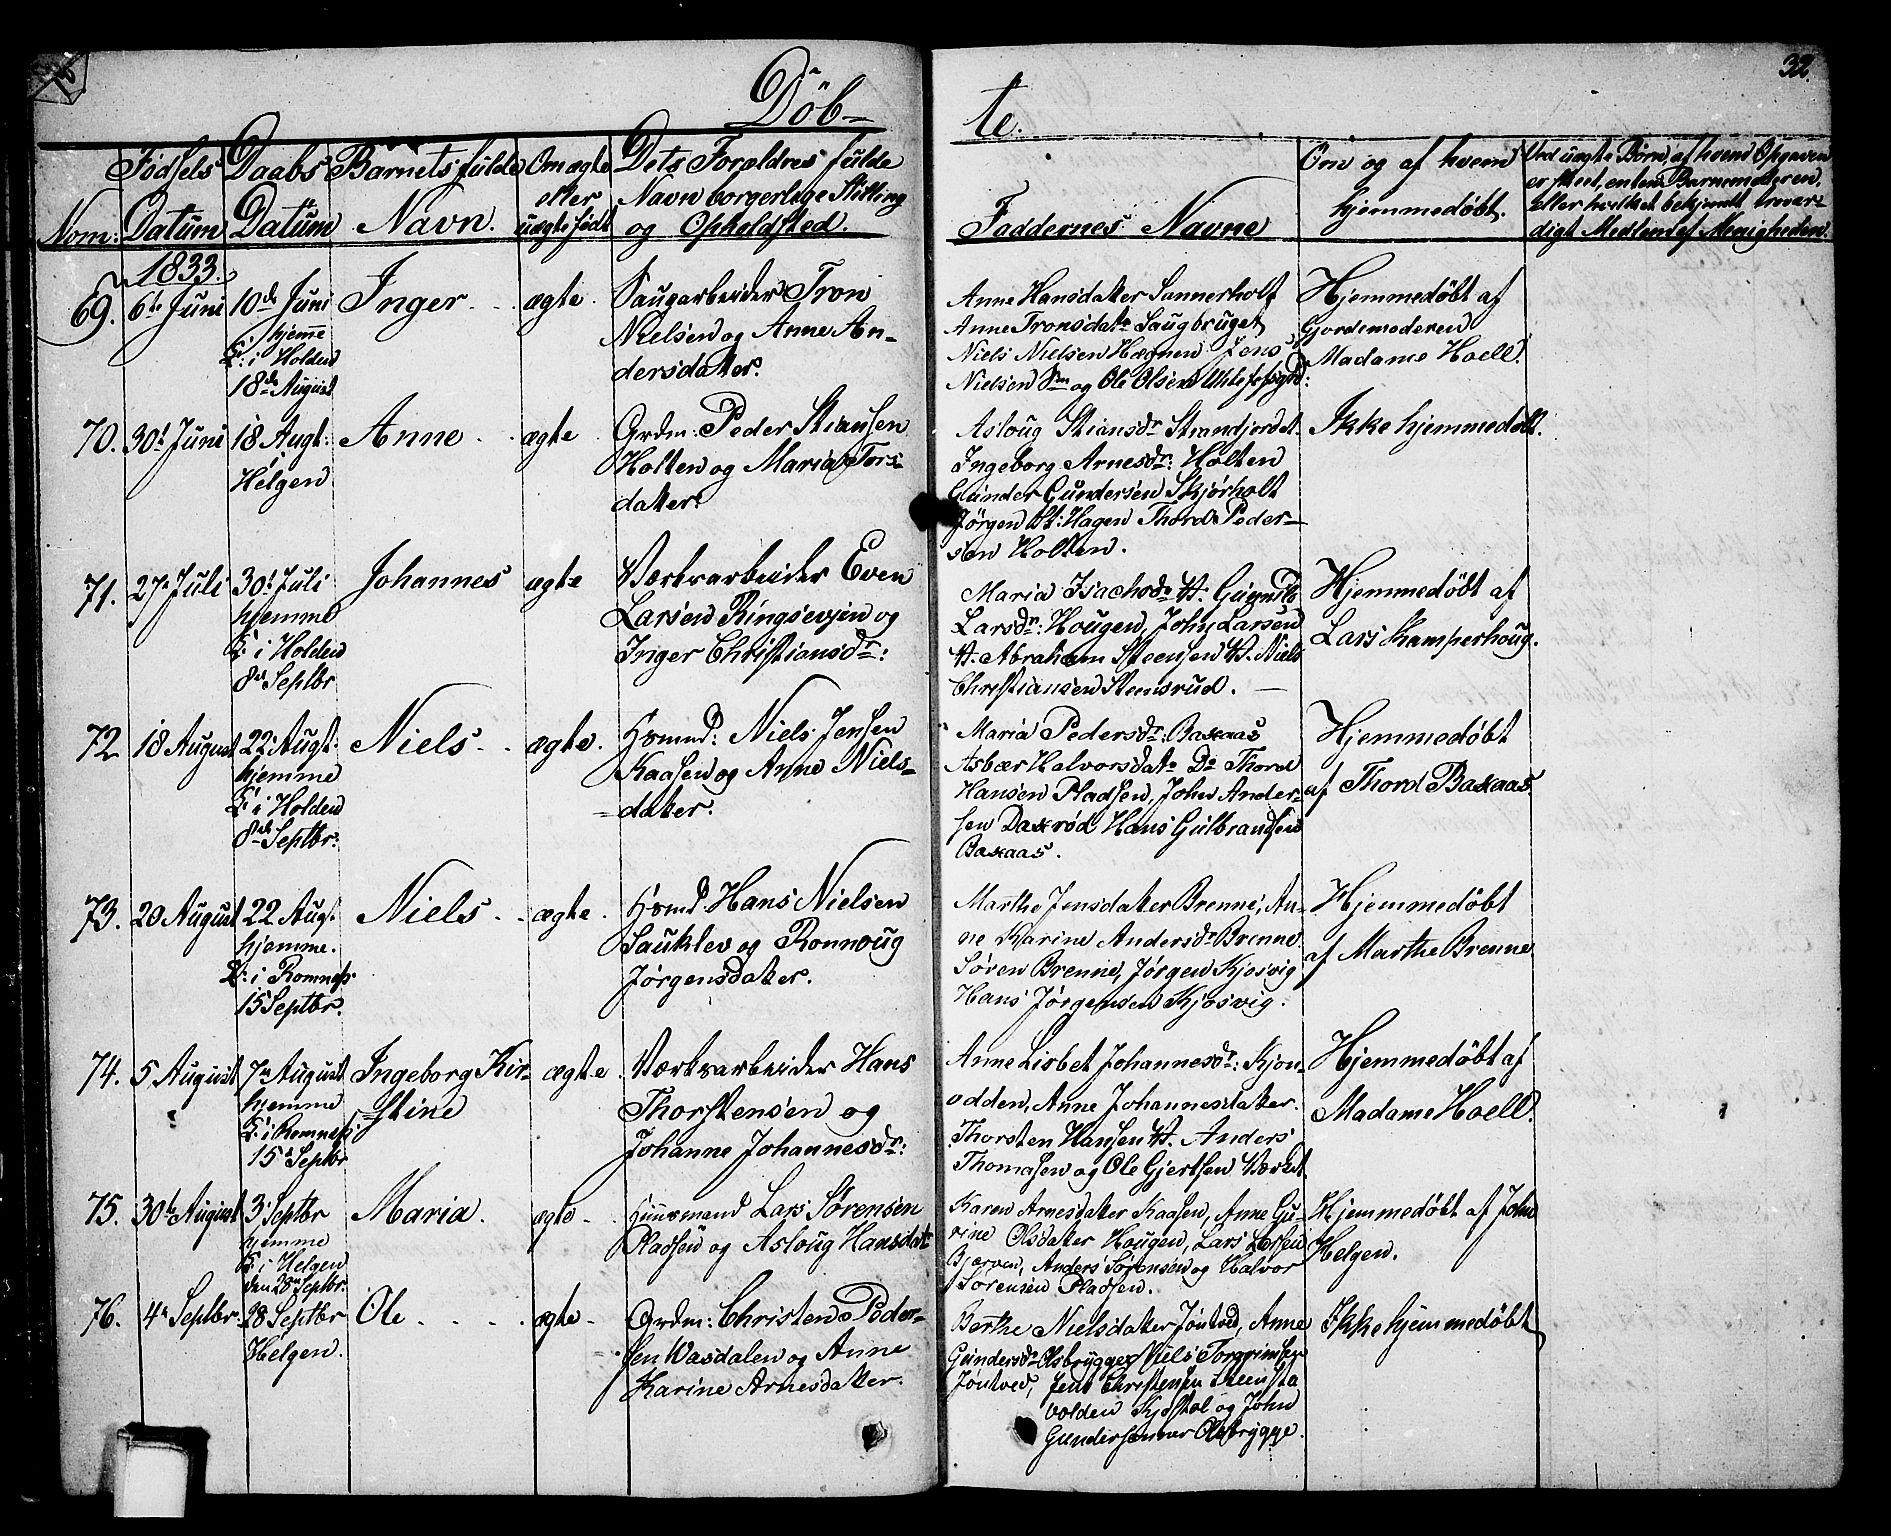 Döb-
te.
32.
Nom:
Födsels Datum
Daabs Datum
Barnets fulde Navn.
Om ægte eller uægte födt
Dets Forældres fulde Navn borgerlige Stilling og Opholdsted.
Faddernes Navne
Om og af hvem hjemmedøbt.
Ved uægte Børn, af hvem Opgaven er skeet, enten Barnemoderen, eller hvilket bekjendt troværdigt Medlem af Menigheden.
1833.
69.
6te Juni
10de Juni
hjemme
i Holden
18de August
Inger
ægte
Saugarbeider Tron
Nielsen og Anne An-
dersdatter.
Anne Hansdatter Sannerholt
Anne Tronsdatr Saugbruget
Niels Nielsen Jens
Nielsen Sm og Ole Olsen
Hjemmedøbt af
Gordemoderen
Madame Hoell.
70.
30t Juni
18 Augt:
Helgen
Anne
ægte
Grdm: Peder Stiansen
Holten og Maria Tors-
datter.
Asloug Stiansdr Strandjordet
Ingeborg Arnesdr: Holten
Gunder Gundersen Skjørholt
Jørgen Hagen Thord Peder-
sen Holten.
Ikke hjemmedøbt.
71.
27 Juli
30t Juli
hjemme
i Holden
8de Septbr
Johannes
ægte
Værksarbeider Even
Larsen Ringsevjen og
Inger Christiansdr:
Maria Isachsdr
Larsdr: Hougen, John Larsen
Abraham Steensen Niels
Christiansen Steensrud.
Hjemmedøbt af
Lars Kamperhoug.
72
18 August
22 Augt.
hjemme
i Holden
8de Septbr:
Niels
ægte.
Huusmd: Niels Jensen
Kaasen og Anne Niels-
datter.
Maria Pedersdr: Baxaas
Asbær Halvorsdatr Do Thord
Hansen Pladsen, John Ander-
sen Daxrød Hans Gulbrandsen
Baxaas.
Hjemmedøbt
af Thord Baxaas.
73.
20 August
22 Aug.
hjemme.
i Romnes
15 Septbr.
Niels
ægte.
Huusmd Hans Nielsen
Sauklev og Ronnoug
Jørgensdatter.
Marthe Jensdatter Brenne, An-
ne Karine Andersdr Brenne
Søren Brenne, Jørgen Kjosvig
Hans Jørgensen Kjosvig.
Hjemmedøbt
af Marthe Brenne
74.
5 August
7de August
hjemme
i Romnes
15 Septbr
Ingeborg Kir-
stine
ægte
Værksarbeider Hans
Thorstensen og
Johanne Johannesdr:
Anne Lisbet Johannesdr:
odden, Anne Johannesdatter.
Thorsten Hansen Anders
Thomasen og Ole Gjertsen Værket.
Hjemmedøbt af
Madame Hoell.
75.
30te August
3 Septbr
hjemme
i Helgen
den 28 Septbr.
Maria.
ægte
Huusmand Lars Sørensen
Pladsen og Asloug Hansdatr
Karen Arnesdatter Kaasen, Anne Gu-
rine Olsdatter Hougen, Lars Larsen
Anders Sørensen og Halvor
Sørensen Pladsen.
Hjemmedøbt af John
Helgen.
76.
4de Septbr
28 Septbr
Helgen.
Ole
ægte
Grdm: Christen Peder-
sen Vasdalen og Anne
Karine Arnesdatter.
Berthe Nielsdatter Jøntved, Anne
Gundersdr Olsbrygge Niels Torgrimsen
Jøntved, Jens Christensen
volden Kjøstol og John
Gundersønner Olsbrygge.
Ikke hjemmedøbt